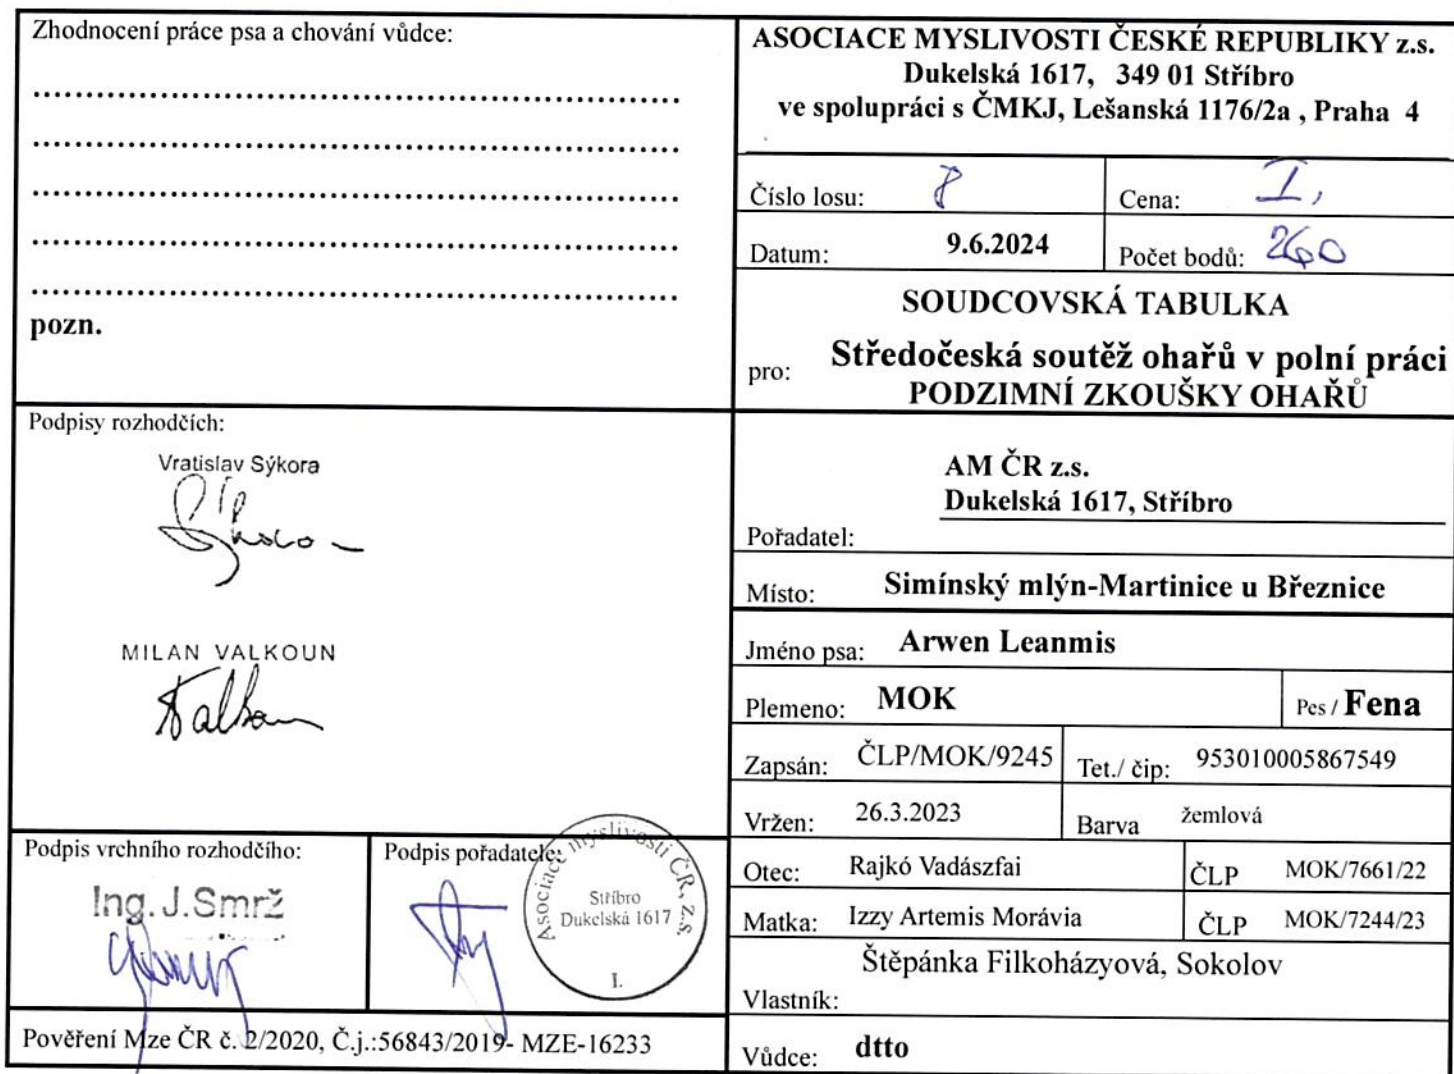 Zhodnocení práce psa a chování vůdce:
pozn.
Podpisy rozhodčích:
Vratislav Sýkora
MILAN VALKOUN
Valkoun
Podpis vrchního rozhodčího:
Ing. J. Smrž
Podpis pořadatele:
Asociace myslivosti ČR, z.s.
Stříbro
Dukelská 1617
I.
Pověření Mze ČR č. 2/2020, Č.j.:56843/2019- MZE-16233
ASOCIACE MYSLIVOSTI ČESKÉ REPUBLIKY z.s.
Dukelská 1617, 349 01 Stříbro
ve spolupráci s ČMKJ, Lešanská 1176/2a , Praha 4
Číslo losu: 8 Cena: I,
Datum: 9.6.2024 Počet bodů: 260
SOUDCOVSKÁ TABULKA
pro: Středočeská soutěž ohařů v polní práci
PODZIMNÍ ZKOUŠKY OHAŘŮ
AM ČR z.s.
Dukelská 1617, Stříbro
Pořadatel:
Místo: Simínský mlýn-Martinice u Březnice
Jméno psa: Arwen Leanmis
Plemeno: MOK Pes / Fena
Zapsán: ČLP/MOK/9245 Tet./ čip: 953010005867549
Vržen: 26.3.2023 Barva žemlová
Otec: Rajkó Vadászfai ČLP MOK/7661/22
Matka: Izzy Artemis Morávia ČLP MOK/7244/23
Štěpánka Filkoházyová, Sokolov
Vlastník:
Vůdce: dtto